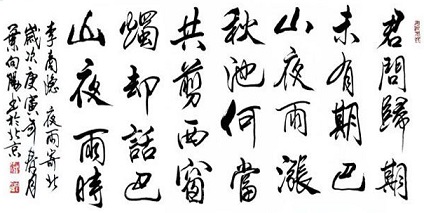 君問歸期
未有期巴
山夜雨漲
秋池何當
共剪西窗
燭却話巴
山夜雨時
李商隐 夜雨寄北
歲次庚寅年月
葉向陽书於北京